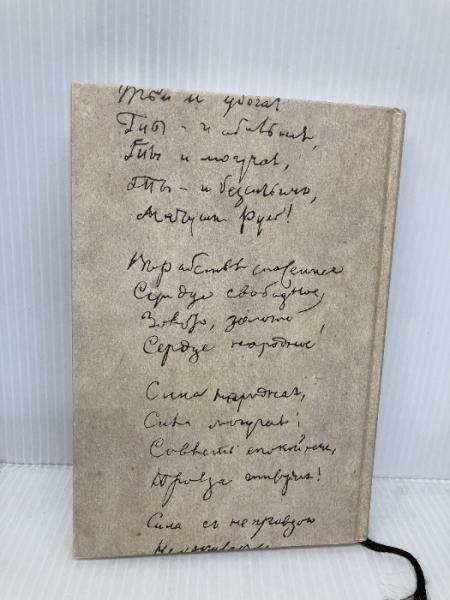 Ты и убогая
Ты - и обильная,
Ты и могучая,
Ты - и безсильная,
Матушка Русь!
Въ рабствѣ спасенное
Сердце свободное,
Золото, золото,
Сердце народное
Сила народная,
Сила могучая:
Совѣсть спокойная,
Правда живуча!
Сила съ неправдою